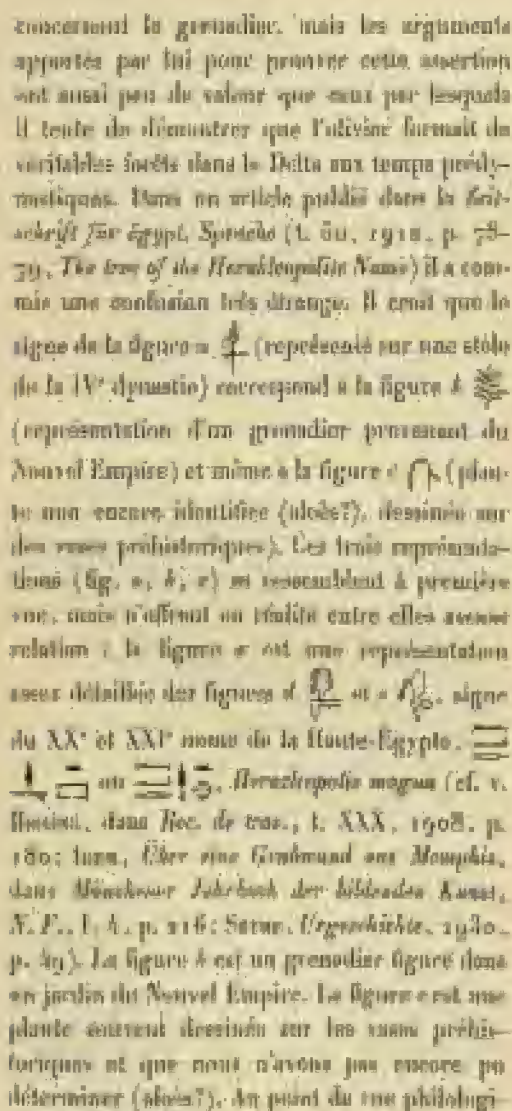 concernant le grenadier, mais les arguments
apportés par lui pour prouver cette assertion
ont aussi peu de valeur que ceux par lesquels
il tente de démontrer que l'olivier formait de
véritables forêts dans le Delta aux temps prédy-
nastiques. Dans un article publié dans la Zeit-
schrift für ägypt. Sprache (t. 60, p. 78-
79, The tree of the Herakleopolite Nome) il a com-
mis une confusion très étrange. Il croit que le
signe de la figure a (représenté sur une stèle
de la IVe dynastie) correspond à la figure b
(représentation d'un grenadier provenant du
Nouvel Empire) et même à la figure c (plan-
te non encore identifiée (aloès?), dessinée sur
des vases préhistoriques). Ces trois représenta-
tions (fig. a, b, c) se ressemblent à première
vue, mais n'offrent en réalité entre elles aucune
relation : la figure a est une représentation
assez détaillée des figures d et e, signe
du XXe et XXIe nome de la Haute-Égypte,
ou , Heracleopolis magna (cf. v.
dans Rec. de trav., t. XXX, 1908, p.
180; Über eine Grabwand aus Memphis,
dans Münchener Jahrbuch der bildenden Kunst,
N. F., I, 4, p. 216; Sethe, Urgeschichte, 1930,
p. 49). La figure b est un grenadier figuré dans
un jardin du Nouvel Empire. La figure c est une
plante souvent dessinée sur les vases préhis-
toriques et que nous n'avons pas encore pu
déterminer (aloès?). Au point de vue philologi-